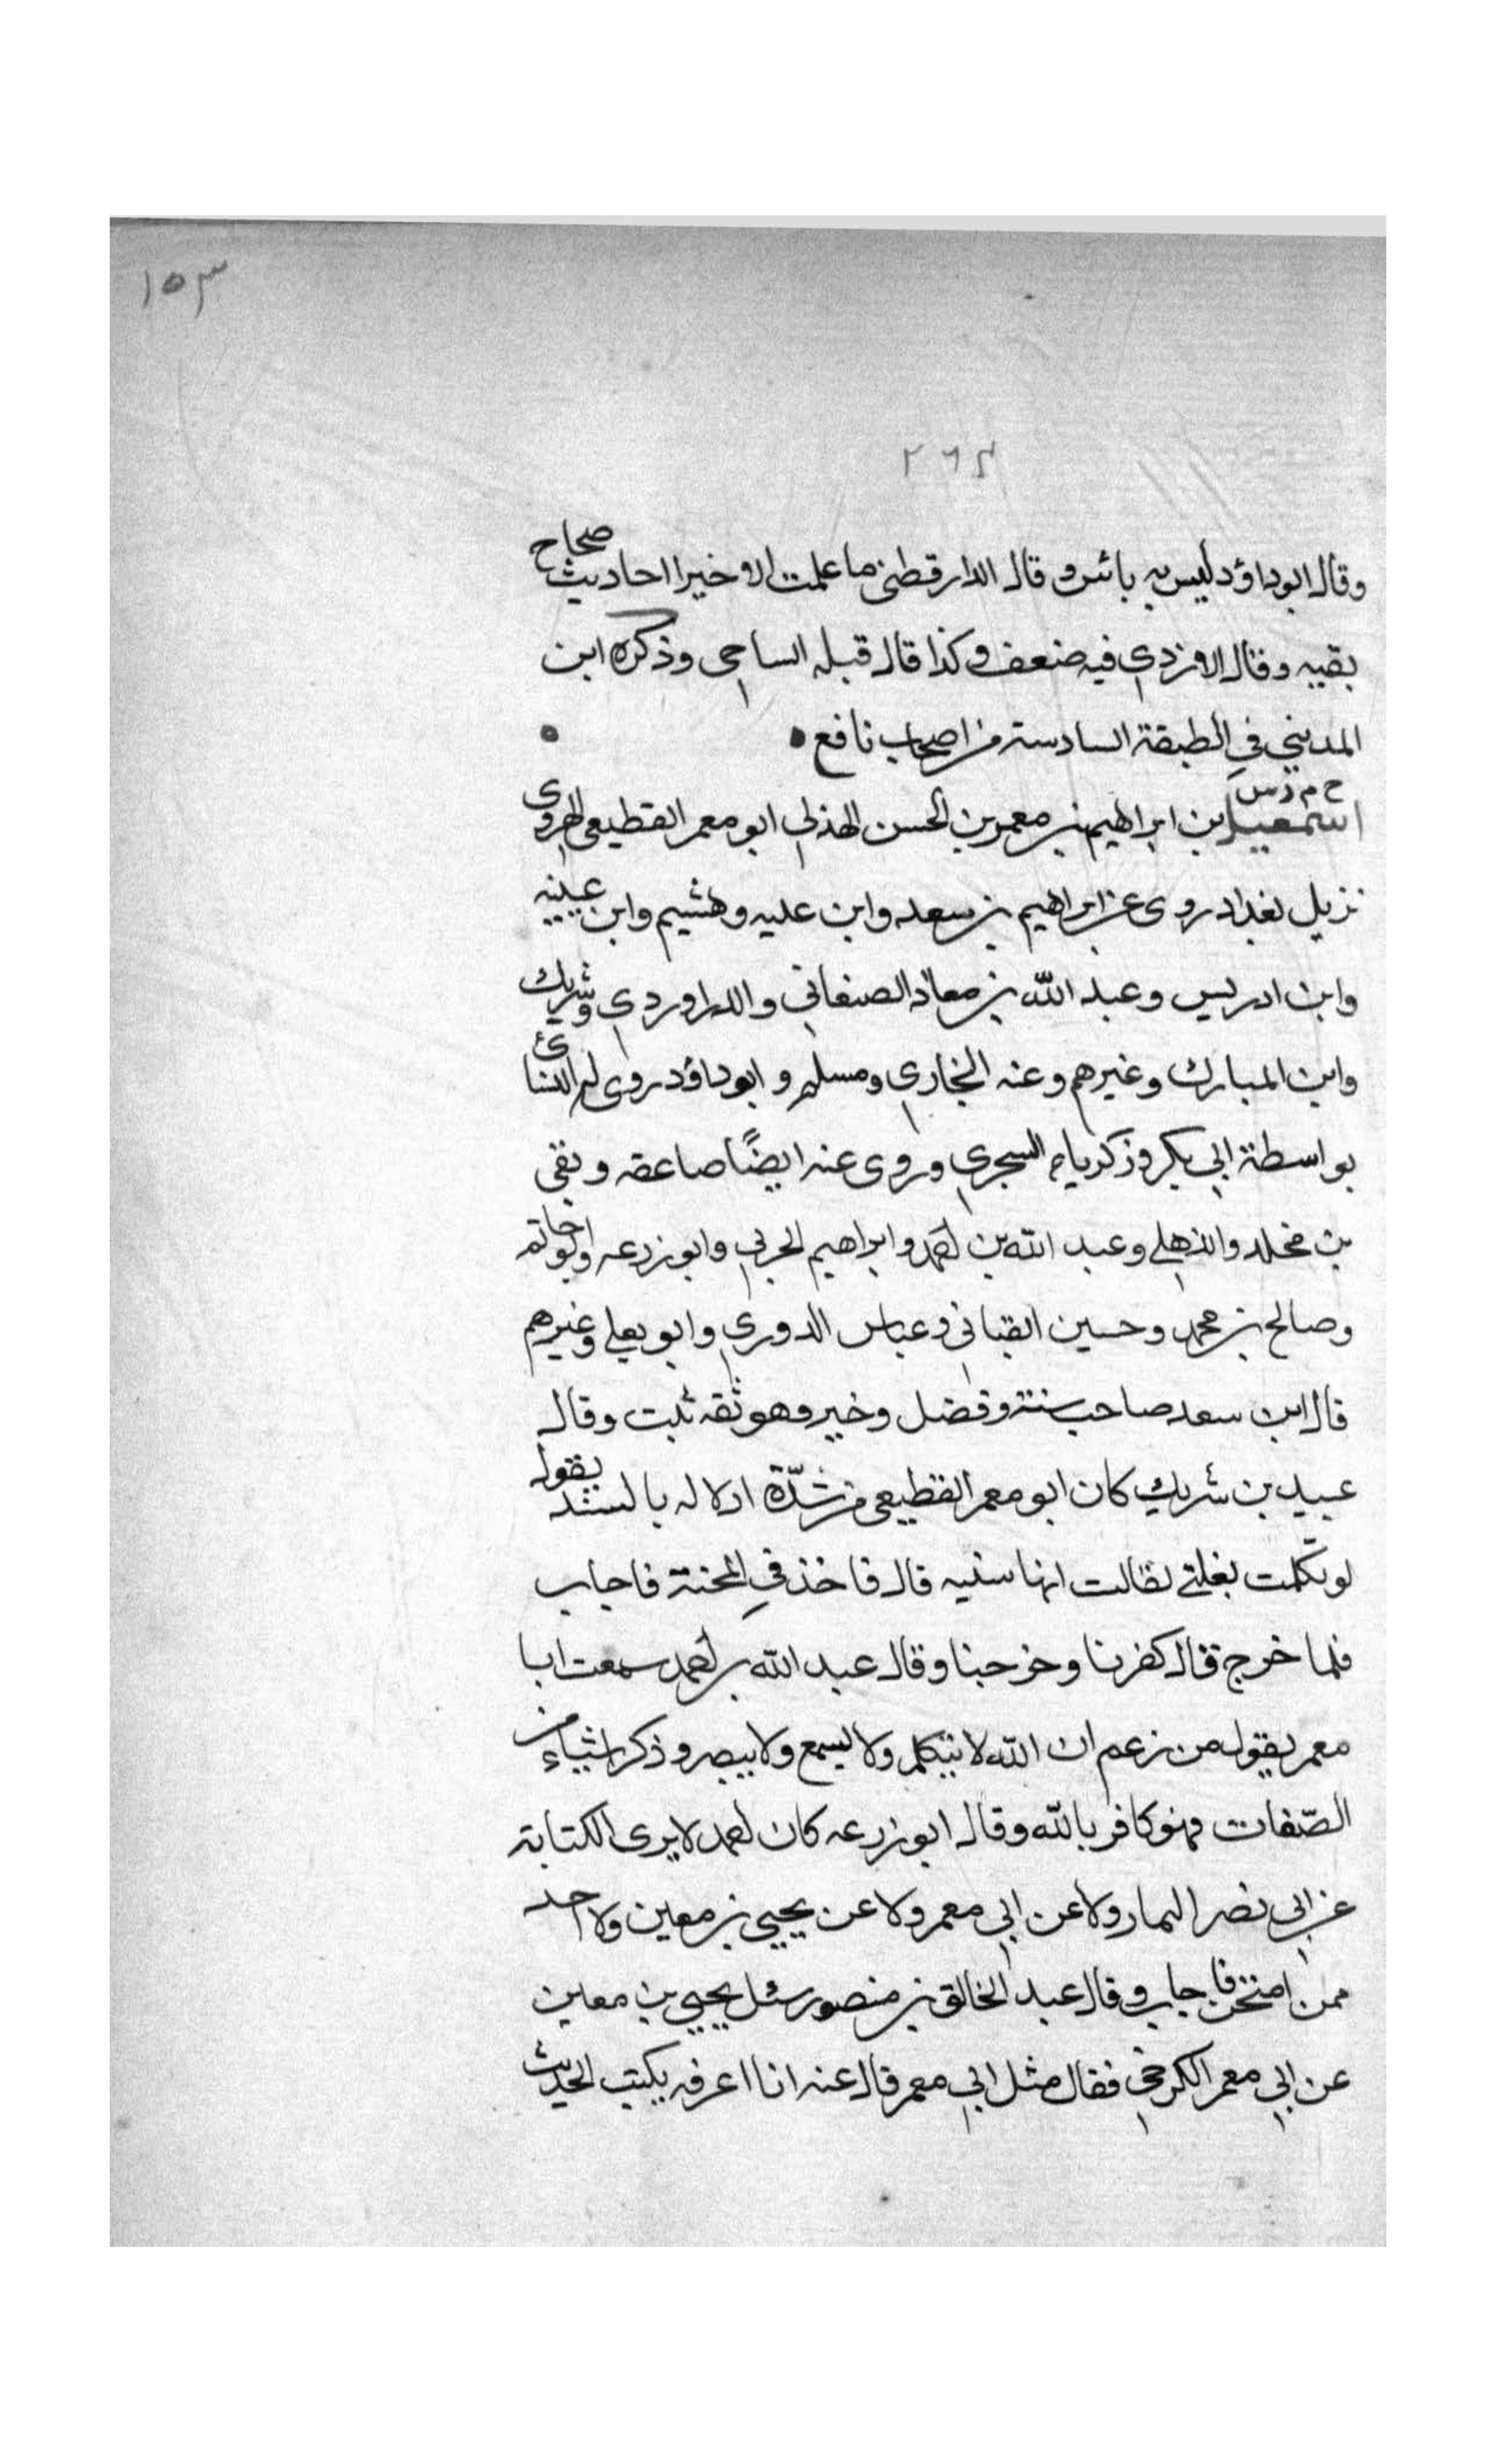 ١٥٣
٢٦٢
وقال ابوداؤد ليس به بائس وقال الدارقطنى ما علمت الا خيرا احاديث صحاح
بقيه وقال الازدي فيه ضعف وكذا قال قبله الساجى وذكره ابن
المديني في الطبقة السادسة من اصحاب نافع
خ م د س
اسمعيل بن ابراهيم بن معمر بن الحسن الهذلي ابو معمر القطيعى الهروى
نزيل بغداد روى عن ابراهيم بن سعد وابن عليه وهشيم وابن عيينه
وابن ادريس وعبد الله بن معاذ الصنعاني والدراوردي وشريك
وابن المبارك وغيرهم وعنه البخاري ومسلم وابو داؤد روى له النسائى
بواسطة ابي بكر وزكرياء السجزي وروى عنه ايضًا صاعقه وبقى
بن مخلد والذهلي وعبد الله بن احمد وابراهيم الحربي وابو زرعه وابو حاتم
وصالح بن محمد وحسين القبانى وعباس الدوري وابو يعلي وغيرهم
قال ابن سعد صاحب سنة وفضل وخير وهو ثقه ثبت وقال
عبيد بن شريك كان ابو معمر القطيعى من شدّة ادلاله بالسنه يقول
لو تكلمت بغلتي لقالت انها سنيه قال فاخذ في المحنة فاجاب
فلما خرج قال كفرنا وخرجنا وقال عبد الله بن احمد سمعت ابا
معمر يقول من زعم ان الله لا يتكلم ولا يسمع ولا يبصر وذكر اشياء من
الصّفات فهو كافر بالله وقال ابو زرعه كان احمد لا يرى الكتابة
عن ابي نصر التمار ولا عن ابي معمر ولا عن يحيي بن معين ولا احد
ممن امتحن فاجاب وقال عبد الخالق بن منصور سئل يحيي بن معين
عن ابي معمر الكرخي فقال مثل ابي معمر قال عنه انا اعرفه يكتب الحديث